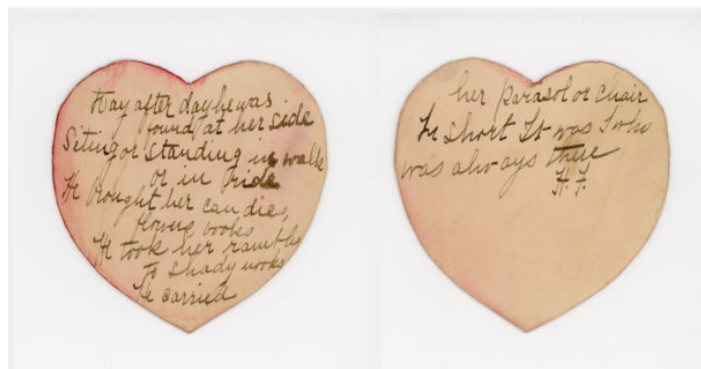 Day after day he was
found at her side
Siting or standing in walk
or in Pride
He brought her candie,
flowers books
He took her rambles
to shady nooks
He carried
her parasol or chair
In short It was I who
was always there
H. F.